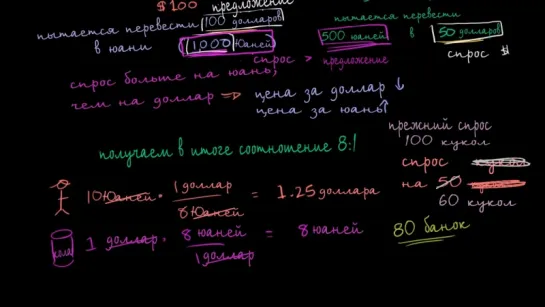 $100 предложение
пытается перевести 100 долларов
в юани 1,000 Юаней
пытается перевести
500 юаней в 50 долларов
спрос > предложение
спрос $
спрос больше на юань,
чем на доллар → цена за доллар ↓
цена за юань ↑
получаем в итоге соотношение 8:1
прежний спрос
100 кукол
спрос
на 50
60 кукол
10 Юаней · 1 доллар / 8 Юаней = 1.25 доллара
кола 1 доллар · 8 юаней / 1 доллар = 8 юаней
80 банок